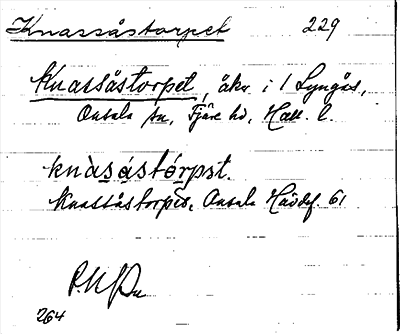 Knassåstorpet 229
Knassåstorpet, åkr. i 1 Lyngås,
Onsala sn, Fjäre hd, Hall. l.
knàsåstórpst.
Knassåstorpet, Onsala Hävdef. 61
264